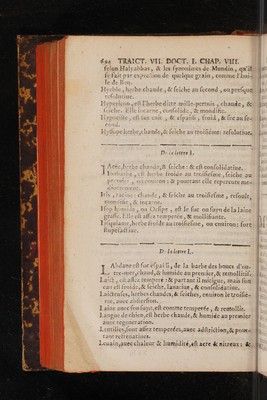 690 TRAICT. VII. DOCT. I. CHAP. VIII.
selon Halyabbas, & les synonimes de Mondin, qu'il
se fait par expression de quelque grain, comme l'hui-
le de Ben.
Hyeble, herbe chaude, & seiche au second, ou presque
resolutiue.
Hypericon, est l'herbe dite mille-pertuis, chaude, &
seiche. Elle incarne, consolide, & mondifie.
est suc & espaissi, froid, & sec au se-
cond.
Hyssope herbe, chaude, & seiche au troisiéme: resolutiue.
De la lettre I.
herbe chaude, & seiche: & est consolidatiue.
herbe froide au troisiesme, seiche au
premier, & pourtant elle repercute me-
Iris, racine: chaude, & seiche au troisiesme, resoult,
mondifie, & incarne.
Isop humide, ou Oesipe, est le suc ou suyn de la laine
grasse. Elle est assez temperée, & mollifiante.
herbe froide au troisiesme, ou enuiron: fort
stupefactiue.
De la lettre L.
LAbdane est suc espaissi, de la barbe des boucs d'ou-
tre-mer, chaud, & humide au premier, & remollitif.
Laict, est assez tempere: & partant il mitigue, mais son
eau est froide, & seiche, laxatiue, & consolidatiue.
Laictucles, herbes chaudes, & seiches, enuiron le troisié-
me, auec abstersion.
Laine auec son suyn, est comme temperée, & remollit.
Langue de chien, est herbe chaude, & humide au premier
auec regeneration.
Lentilles, sont assez temperées, auec adstriction, & pour-
tant refrenatiues.
Leuain, auec chaleur & humidité, est acre & nitreux: &